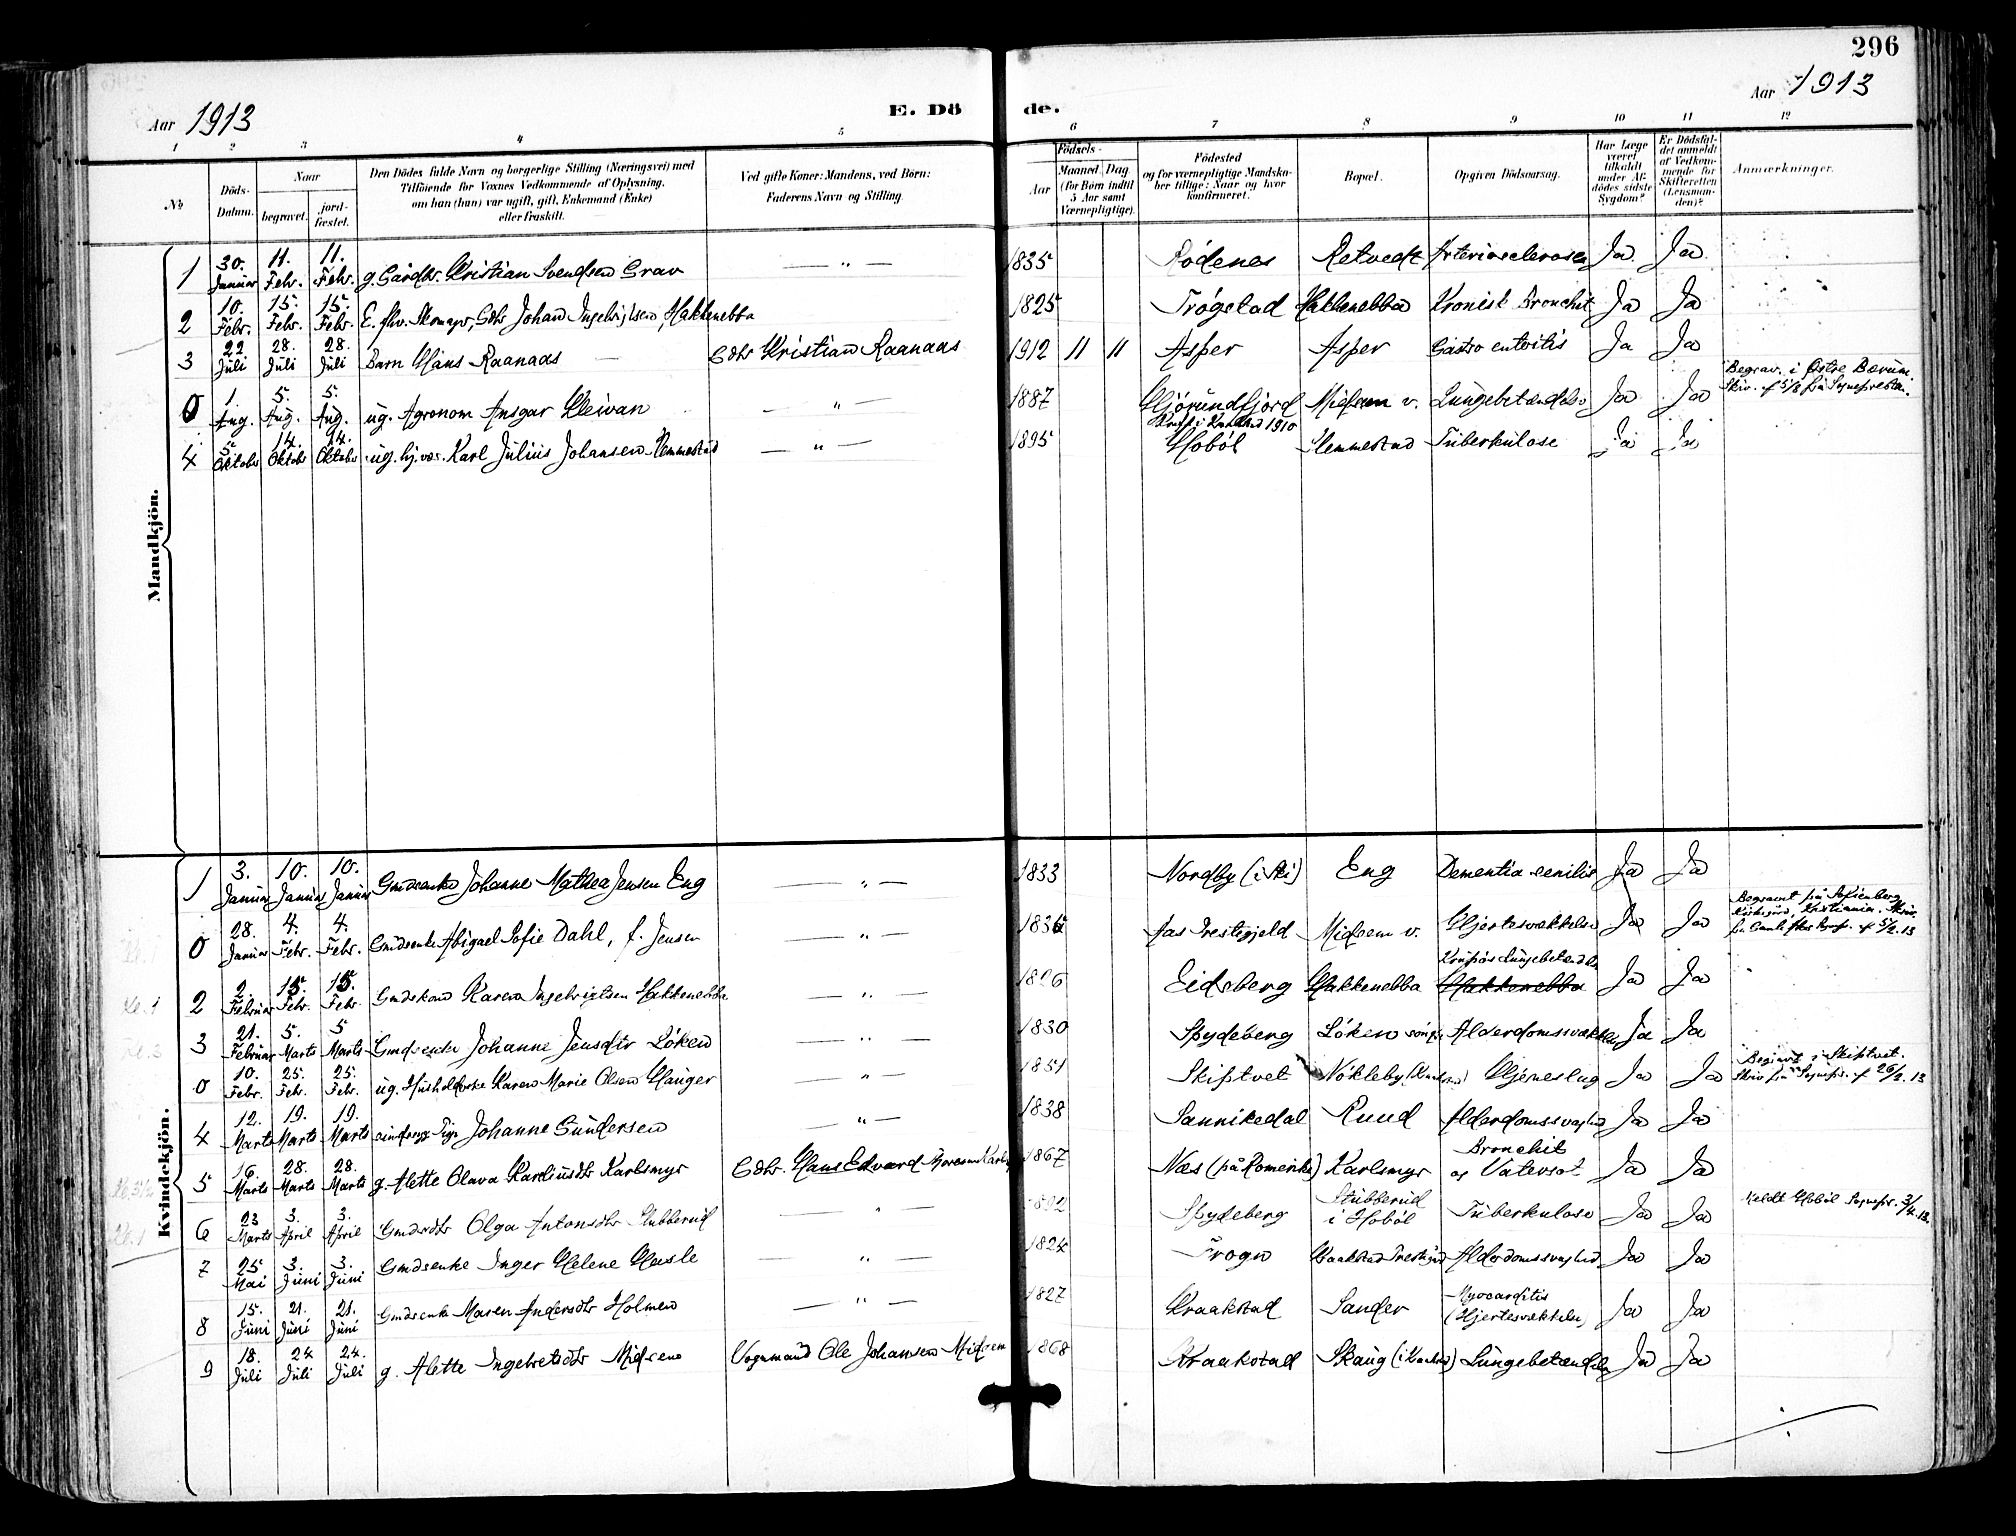 296
Aar 1913
E. Dö de.
Aar 1913
1 2 3 4 5 6 7 8 9 10 11 12
No
Döds-Datum.
Naar
begravet.
jord-fæstet.
Den Dödes fulde Navn og borgerlige Stilling (Næringsvei) med
Tilföiende for Voxnes Vedkommende af Oplysning,
om han (hun) var ugift, gift, Enkemand (Enke)
eller fraskilt.
Ved gifte Koner: Mandens, ved Börn:
Faderens Navn og Stilling.
Födsels-
Aar
Maaned. Dag
(for Börn indtil
5 Aar samt
Værnepligtige).
Födested
og for værnepligtige Mandska-
ber tillige: Naar og hvor
konfirmeret.
Bopæl.
Opgiven Dödsaarsag.
Har Læge
været
tilkaldt
under Af-
dödes sidste
Sygdom?
Er Dödsfal-
det anmeldt
af Vedkom-
mende for
Skifteretten
(Lensman-
den)?
Anmærkninger.
Mandkjön.
1 30. Januar 11. Febr. 11. Febr. g. Gårdbr. Kristian Svendsen Grav — " — 1835 Rödenes Retvedt Arteriosclerose Ja Ja
2 10. Febr. 15. Febr. 15. Febr. E. fhv. Skomager, Gdbr Johan Ingebrigtsen, Hakkenebba 1825 Trögstad Hakkenebba Kronisk Bronchit Ja Ja
3 22 Juli 28. Juli 28. Juli Barn Hans Raanaas — Gdbr Kristian Raanaas 1912 11 11 Asper Asper Gastro enteritis Ja Ja
0 1. Aug. 5. Aug. 5. Aug. ug. Agronom Ansgar Kleivan — " — 1887 Hjörundfjord Midsem v. Lungebetændelse Ja Ja Begrav. i Östre Bærum.
Skriv. af 5/8 fra Sognepresten.
4 5. Oktobr 14. Oktobr 14. Oktobr ug. hj.vær. Karl Julius Johansen Klemmestad — " — 1895 Konf. i Kraakstad 1910
Hobøl Klemmestad Tuberkulose Ja Ja
Kvindekjön.
1 3. Januar 10. Januar 10. Januar Gmdsenke Johanne Mathea Jensen Eng — " — 1833 Nordby (i Ski) Eng Dementia senilis Ja Ja
0 28. Januar 4. Febr. 4. Febr. Gmdsenke Abigael Sofie Dahl, f. Jensen — " — 1836 Aas Prestegjeld Midsem v. Hjertesvækkelse Ja Ja Begravet på Sofienberg
Kirkegård, Kristiania. Skriv.
fra Gamle Akers Sognepr. af 5/2. 13
2 2. Februar 15. Febr. 15. Febr. Gmdskone Karen Ingebrigtsen Hakkenebba — " — Eidsberg Hakkenebba Krupøs Lungebetændelse
Hakkenebba Ja Ja
3 21. Februar 5. Marts 5 Marts Gmdsenke Johanne Jensdtr Löken — " — 1830 Spydeberg Löken Alderdomssvækkelse Ja Ja
0 10. Febr. 25. Febr. 25. Febr. ug. Husholderske Karen Marie Olsen Hauger — " — 1851 Skiptvet Nökleby (Kraakstad) Hjerneslag Ja Ja Begravet i Skiptvet.
Skriv fra Sognepr. af 26/2. 13
4 12. Marts 19. Marts 19. Marts sindssyg Pige Johanne Gundersen — " — 1838 Sannikedal Ruud Alderdomssvaghed Ja Ja
5 16. Marts 28. Marts 28. Marts g. Alette Olava Karliusdtr Karlsmyr Gdbr. Hans Edvard 1867 Næs (på Romerike) Karlsmyr Bronchit
og Vatersot Ja Ja
6 23 Marts 3. April 3. April Gmdsdtr Olga Antonsdtr Stubberud — " — Spydeberg Stubberud
i Hobøl Tuberkulose Ja Ja Meldt Hobøl Sognepr. 3/4. 13.
7 25 Mai 3. Juni 3. Juni Gmdsenke Inger Helene Hasle — " — 1824 Frogn Kraakstad Prestegård Alderdomssvaghed Ja Ja
8 15. Juni 21. Juni 21. Juni Gmdsenke Maren Andersdtr Holmen — " — 1827 Kraakstad Sander Myocarditis
(Hjertesvækkelse) Ja Ja
9 18. Juli 24 Juli 24. Juli g. Alette Ingebretsdtr Midsem Vognmand Ole Johansen Midsem 1868 Kraakstad Skaug (i Kraakstad) Lungebetændelse Ja Ja